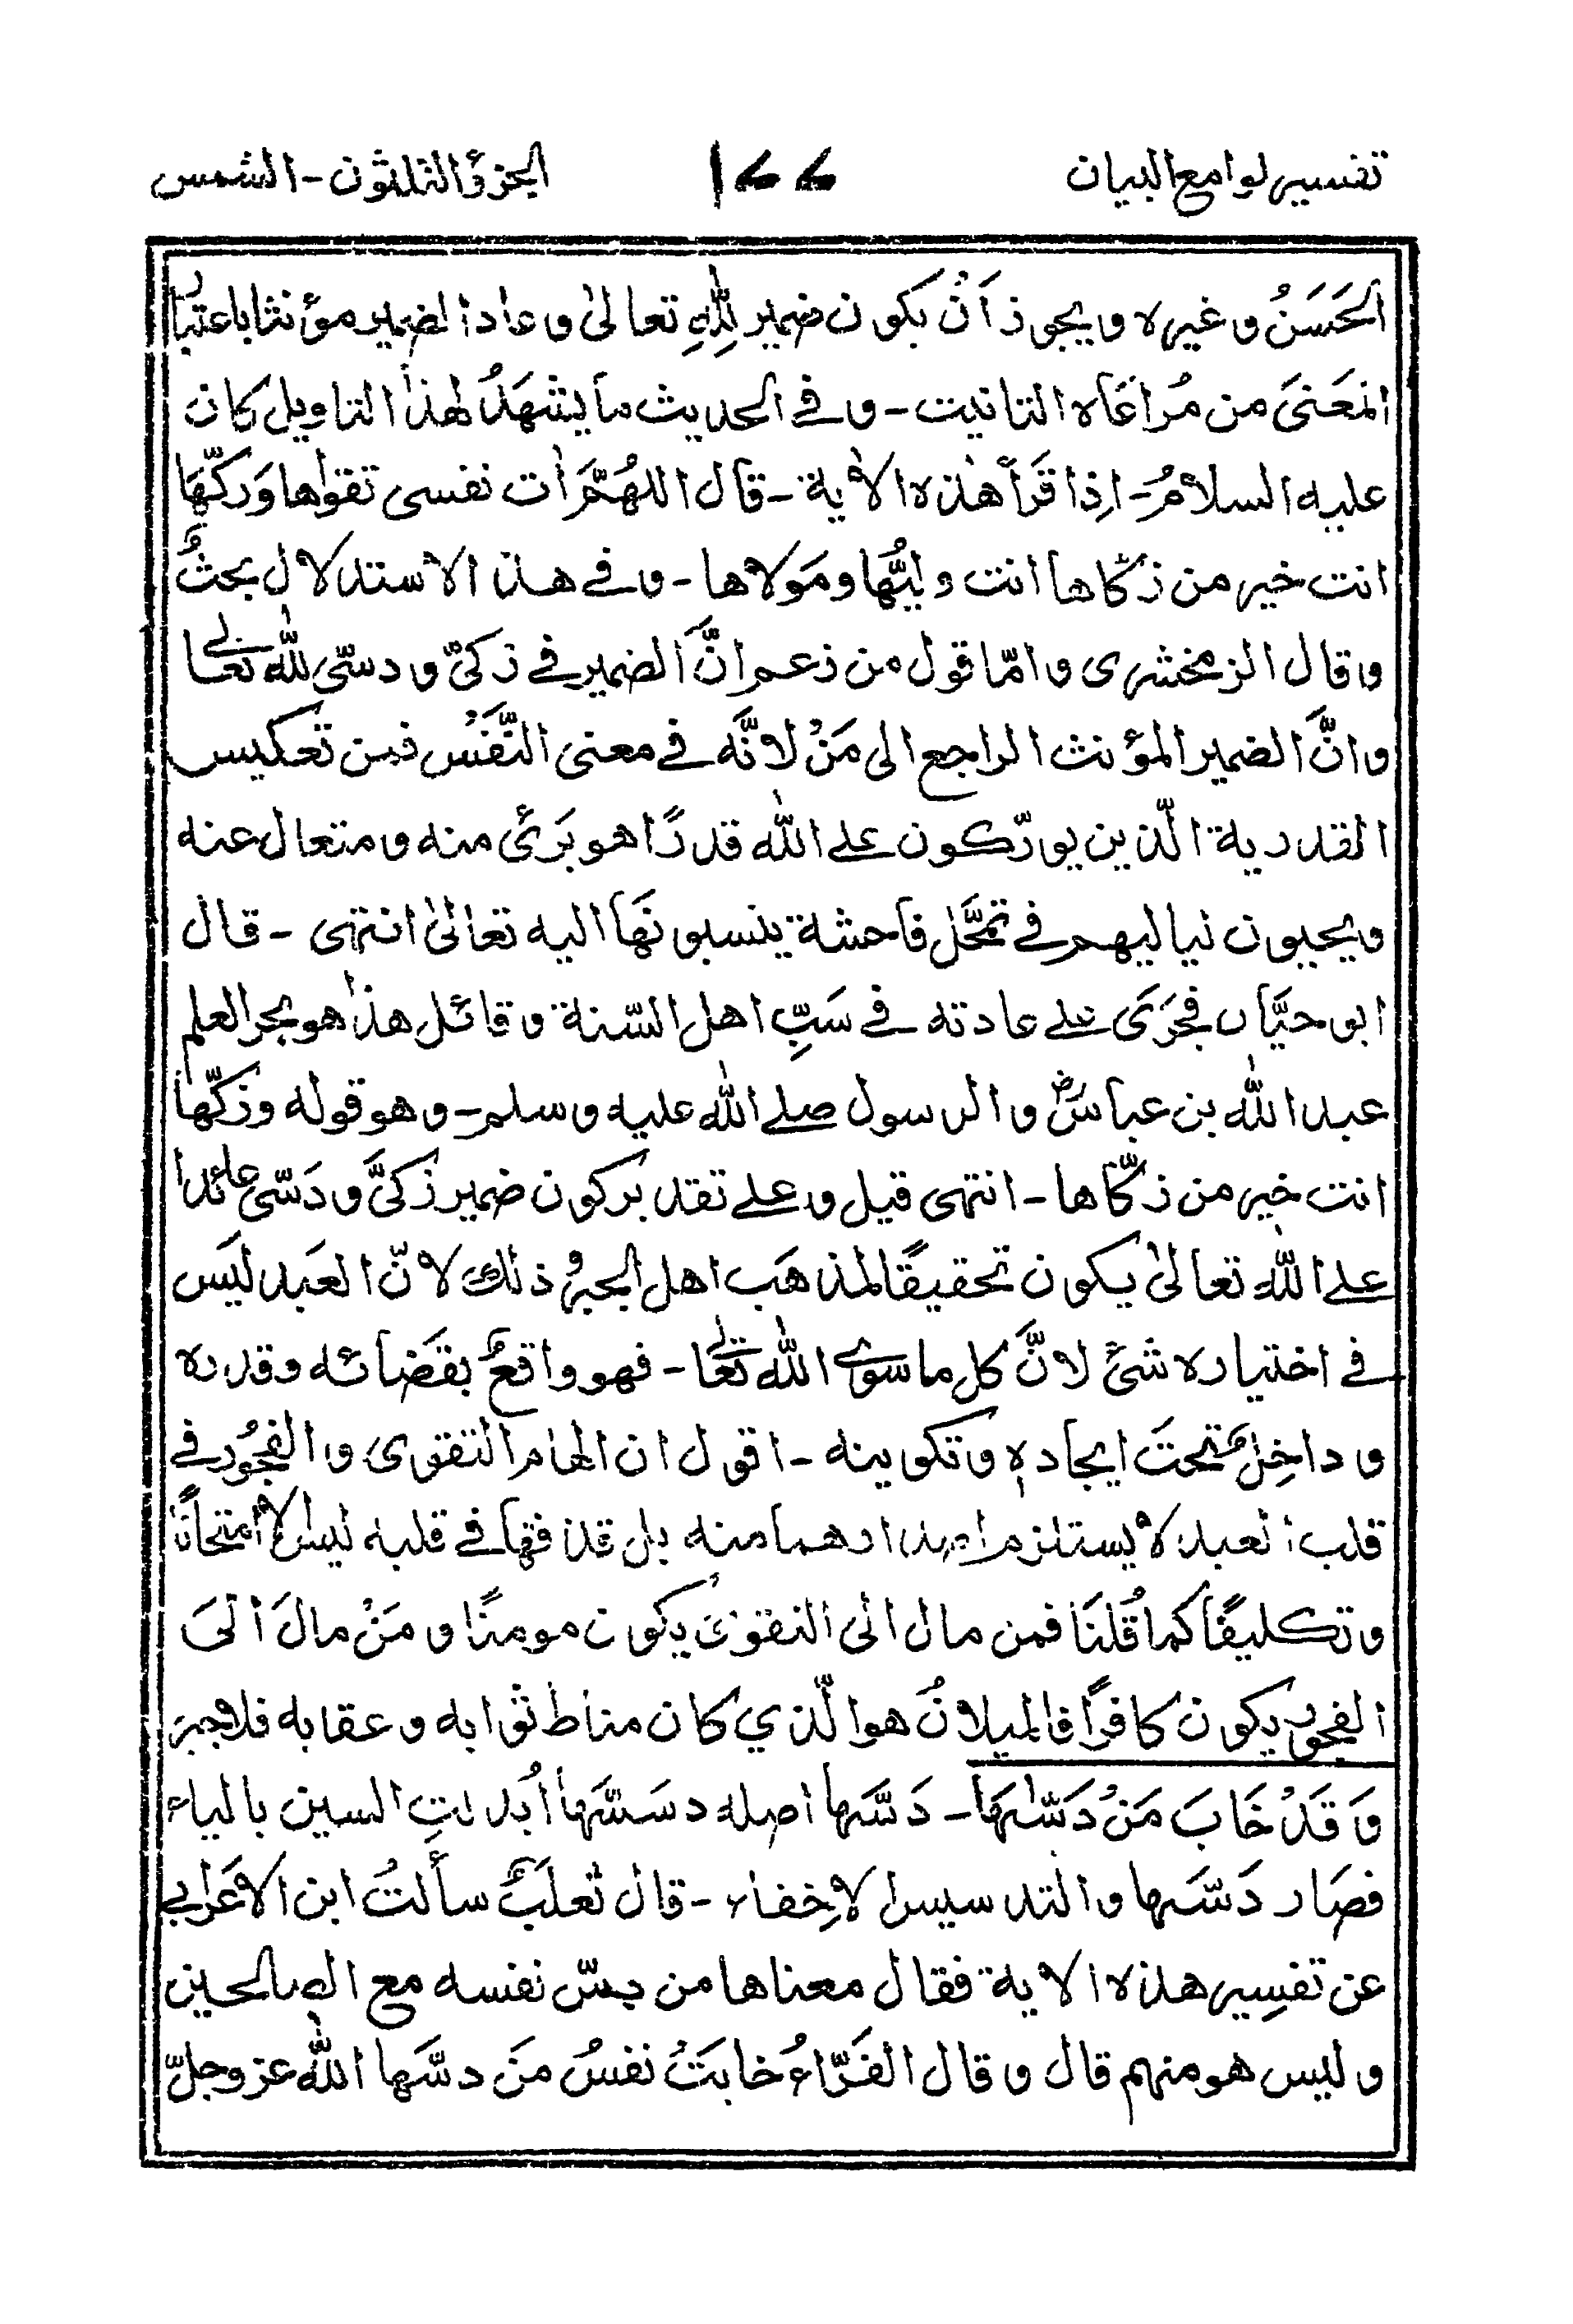 تفسير لوامع البيان ١٧٧ الجزؤ الثلثون - الشمس
الحَسَنُ وغيره ويجوز اَنْ يكون ضمير لِلّٰهِ تعالىٰ وعاد الضمير مؤنثا باعتبار
المَعَنىَ من مُراعَاه التانيت - وفے الحديث ما يشهَدُ لهٰذا التاويل كان
عليه السلامُ - اِذا قَرأ هٰذه الاٰية - قال اللهُمَّ اٰت نفسى تقوٰها وَزكّهَا
انت خير من زكّاها انت وليُّها ومَولاها - وفے هذا الاستدلال بحثٌ
وقال الزمخشرى وامّا قول من زعم انَّ الضمير فے زكىّ ودسّى لِلّٰه تعالے
وانَّ الضمير المؤنث الراجع الى مَنْ لانَّه فے معنى النَّفَسْ فمن تعكيس
القدرية الّذين يورّكون علے اللّٰه قدرًا هو بَرئ منه ومتعال عنه
ويحيون لياليهم فے تمحَّل فاحشة ينسبونَها اليه تعالىٰ انتهى - قال
ابو حيَّان فجَرَى علے عادته فے سَبِّ اهل السّنة وقائل هذا هو بحر العلم
عبد اللّٰه بن عباسؓ والرسول صلے اللّٰه عليه وسلم - وهو قوله وزكّها
انت خير من زكّاها - انتهى قيل وعلے تقدير كون ضمير زكىَّ ودَسّى عائدا
علے اللّٰه تعالىٰ يكون تحقيقًا لمذهَب اهل الجبر وذلك لانّ العَبد ليَس
فے اختياره شئ لانَّ كل ما سوے اللّٰه تعالٰے - فهو واقعٌ بقَضائه وقدره
وداخِلٌ تحتَ ايجادهٖ وتكوينه - اقول ان الهام التقوى والفجُور فے
قلب العبد لا يستلزم اصدارهما منه بل قذفها فے قلبه ليس الا امتحانًا
وتكليفًا كما قُلنَا فمن مال الى التقوىٰ يكون مومنًا ومَنْ مالَ الىَ
الفجور يكون كافرًا فالميلانُ هو الّذي كان مناط ثوابه وعقابه فلا جبرَ
وَقَدْ خَابَ مَنْ دَسّٰىهَا - دَسّىَها اصله دسَسَّهَا اُبدلتِ السين بالياء
فصَار دَسّىَها والتدسيس الاِخفاء - قال ثعلَبٌ سألتُ ابن الاعَرابي
عن تفسِير هٰذه الاٰية فقال معناها من دسّ نفسه مع الصالحين
وليس هو منهم قال وقال الفَرّاءُ خابَتْ نفسُ مَنَ دسّىَها اللّٰه عز وجلّ